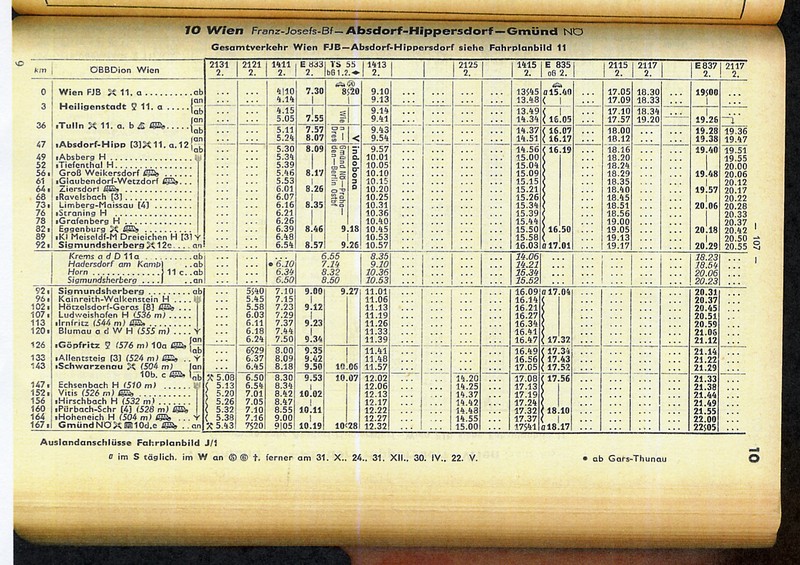 10 Wien Franz-Josefs-Bf—Absdorf-Hippersdorf—Gmünd NÖ
Gesamtverkehr Wien FJB—Absdorf-Hippersdorf siehe Fahrplanbild 11
km ÖBBDion Wien 2131 2121 1411 E 833 TS 55 1413 2125 1415 E 835 2115 2117 E 837 2117
2. 2. 2. 2. 2. 2. 2. 2. 2. 2. 2.
0 Wien FJB 11, a ab 4.10 7.30 8.20 9.10 13.45 15.40 17.05 18.30 19.00
3 Heiligenstadt 11. a an 4.14 9.13 13.48 17.09 18.33
ab 4.15 9.14 13.49 17.10 18.34
36 Tulln 11. a. b an 5.05 7.55 9.41 14.34 16.05 17.57 19.20 19.26
ab 5.11 7.57 9.43 14.37 16.07 18.00 19.28 19.36
47 Absdorf-Hipp [3] 11. a. 12 an 5.24 8.07 9.54 14.51 16.17 18.12 19.38 19.47
ab 5.30 8.09 9.57 14.56 16.19 18.16 19.40 19.51
49 Absberg H 5.34 10.01 15.00 18.20 19.55
52 Tiefenthal H 5.39 10.05 15.04 18.24 20.00
56 Groß Weikersdorf 5.46 8.17 10.10 15.09 18.29 19.48 20.06
61 Glaubendorf-Wetzdorf 5.53 10.15 15.15 18.35 20.12
64 Ziersdorf 6.01 8.26 10.20 15.21 18.40 19.57 20.17
68 Ravelsbach [3] 6.07 10.25 15.26 18.45 20.22
73 Limberg-Maissau [4] 6.16 8.35 10.31 15.34 18.51 20.06 20.28
76 Straning H 6.21 10.36 15.39 18.56 20.33
78 Grafenberg H 6.26 10.40 15.44 19.00 20.37
82 Eggenburg 6.39 8.46 9.18 10.45 15.50 16.50 19.05 20.18 20.42
89 Kl Meiseldf-M Dreieichen H [3] 6.48 10.53 15.58 19.13 20.50
92 Sigmundsherberg 12e an 6.54 8.57 9.26 10.57 16.03 17.01 19.17 20.29 20.55
Wien—Gmünd NÖ—Praha—Dresden—Berlin Ostbf
Vindobona
Krems a d D 11a ab 6.55 8.35 14.06 18.23
Hadersdorf am Kamp ab 6.10 7.14 9.10 14.21 18.54
Horn 11 c. ab 6.34 8.32 10.36 15.34 20.06
Sigmundsherberg an 6.50 8.50 10.53 15.52 20.23
92 Sigmundsherberg ab 5.40 7.10 9.00 9.27 11.01 16.09 17.04 20.31
96 Kainreith-Walkenstein H 5.45 7.15 11.06 16.14 20.37
102 Hötzelsdorf-Geras [8] 5.58 7.23 9.12 11.13 16.21 20.45
107 Ludweishofen H (536 m) 6.03 7.29 11.19 16.27 20.51
113 Irnfritz (544 m) 6.11 7.37 9.23 11.26 16.34 20.59
120 Blumau a d W H (555 m) 6.18 7.44 11.33 16.41 21.06
126 Göpfritz (576 m) 10a an 6.24 7.50 9.34 11.39 16.47 17.32 21.12
ab 6.29 8.00 9.35 11.41 16.49 17.34 21.14
133 Allentsteig [3] (524 m) 6.37 8.09 9.42 11.48 16.56 17.43 21.22
143 Schwarzenau (504 m) an 6.45 8.18 9.50 10.06 11.57 17.05 17.52 21.29
10b. c ab 5.08 6.50 8.30 9.53 10.07 12.02 14.20 17.08 17.56 21.33
147 Echsenbach H (510 m) 5.13 6.54 8.34 12.06 14.25 17.13 21.38
152 Vitis (526 m) 5.20 7.01 8.42 10.02 12.13 14.37 17.19 21.44
156 Hirschbach H (532 m) 5.26 7.05 8.47 12.17 14.42 17.24 21.49
160 Pürbach-Schr [4] (528 m) 5.32 7.10 8.55 10.11 12.22 14.48 17.32 18.10 21.55
164 Hoheneich H (504 m) 5.38 7.16 9.00 12.27 14.55 17.37 22.00
167 Gmünd NÖ 10d,e an 5.43 7.20 9.05 10.19 10.28 12.32 15.00 17.41 18.17 22.05
Auslandanschlüsse Fahrplanbild J/1
im S täglich. im W an ⑤ ⑥ †. ferner am 31. X.. 24.. 31. XII., 30. IV., 22. V.
● ab Gars-Thunau
— 107 —
10